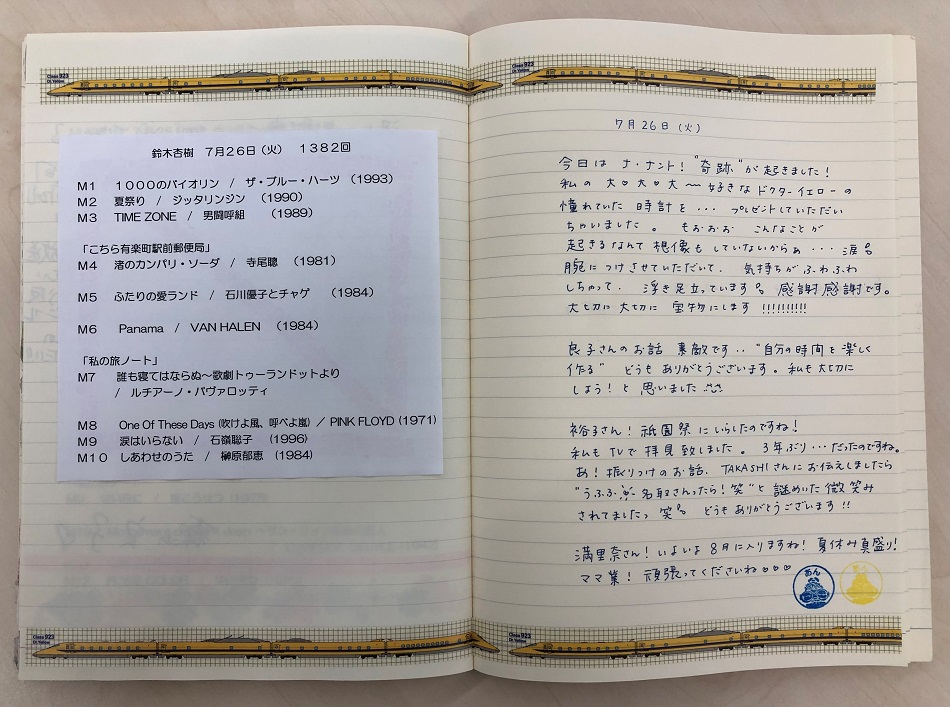 Class 923
Dr. Yellow
鈴木杏樹　7月26日（火）　1382回
M1　1000のバイオリン　/　ザ・ブルー・ハーツ　（1993）
M2　夏祭り　/　ジッタリンジン　（1990）
M3　TIME ZONE　/　男闘呼組　（1989）
「こちら有楽町駅前郵便局」
M4　渚のカンパリ・ソーダ　/　寺尾聰　（1981）
M5　ふたりの愛ランド　/　石川優子とチャゲ　（1984）
M6　Panama　/　VAN HALEN　（1984）
「私の旅ノート」
M7　誰も寝てはならぬ～歌劇トゥーランドットより
/　ルチアーノ・パヴァロッティ
M8　One Of These Days (吹けよ風、呼べよ嵐) ／ PINK FLOYD (1971)
M9　涙はいらない　/　石嶺聡子　（1996）
M10　しあわせのうた　/　榊原郁恵　（1984）
Class 923
Dr. Yellow
Class 923
Dr. Yellow
7月26日（火）
今日は ナ・ナント！"奇跡"が起きました！
私の 大♡大♡大〜好きな ドクターイエローの
憧れていた 時計を … プレゼントしていただい
ちゃいました。 もおおお こんなことが
起きるなんて 想像も していないからぁ … 涙
腕に つけさせていただいて、 気持ちが ふわふわ
しちゃって、 浮き足立っています。 感謝感謝です。
大切に大切に 宝物にします !!!!!!!!!!
良子さんのお話 素敵です‥ "自分の時間を楽しく
作る" どうも ありがとうございます。私も大切に
しよう！と 思いました
裕子さん！祇園祭 にいらしたのですね！
私も TVで 拝見 致しました 。 3年ぶり…だったのですね。
あ！振りつけのお話、TAKASHIさんにお伝えしましたら
"うふふ 名取さんったら！笑"と 謎めいた 微笑み
されてましたっ 笑 どうも ありがとうございます !!
満里奈さん！いよいよ 8月に入りますね！夏休み真盛り！
ママ業！ 頑張ってくださいね♡♡♡
あん
あん
Class 923
Dr. Yellow